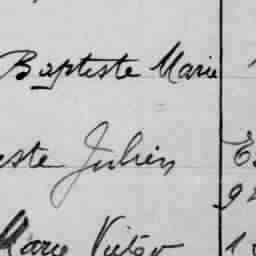 Baptiste Marie
este Julien
Marie Victor